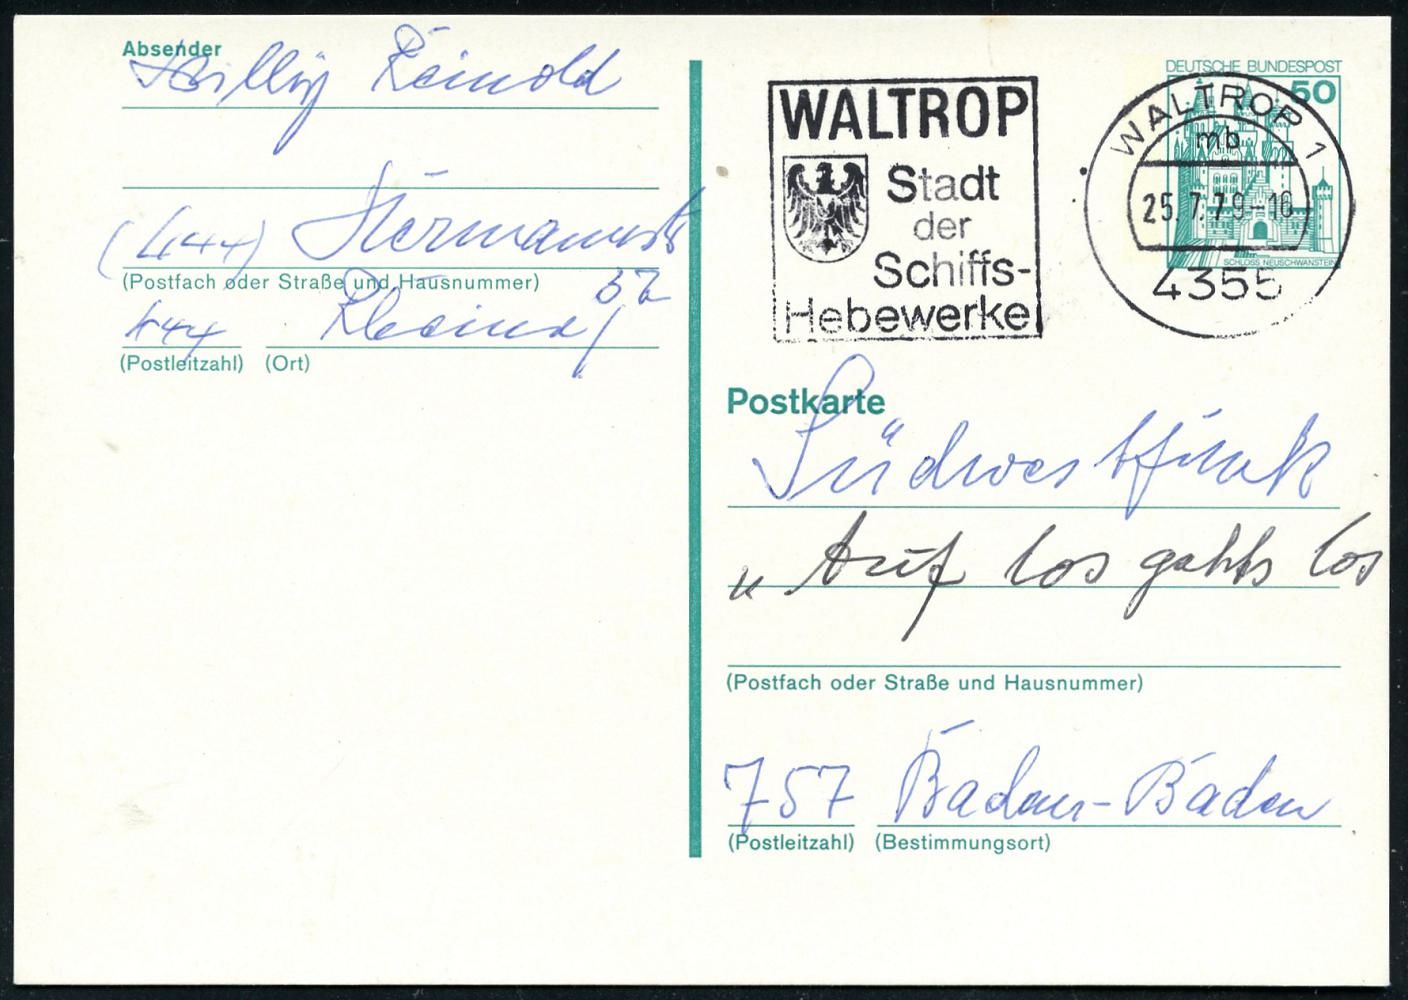 Absender
Willy Reinold
(444) Hermannstr
(Postfach oder Straße und Hausnummer)
444 Rheine
(Postleitzahl) (Ort)
WALTROP
Stadt
der
Schiffs-
Hebewerke
DEUTSCHE BUNDESPOST
50
WALTROP 1
mb
25.7.79-16
SCHLOSS NEUSCHWANSTEIN
4355
Postkarte
Südwestfunk
„ Auf los gehts los
(Postfach oder Straße und Hausnummer)
757 Baden-Baden
(Postleitzahl) (Bestimmungsort)